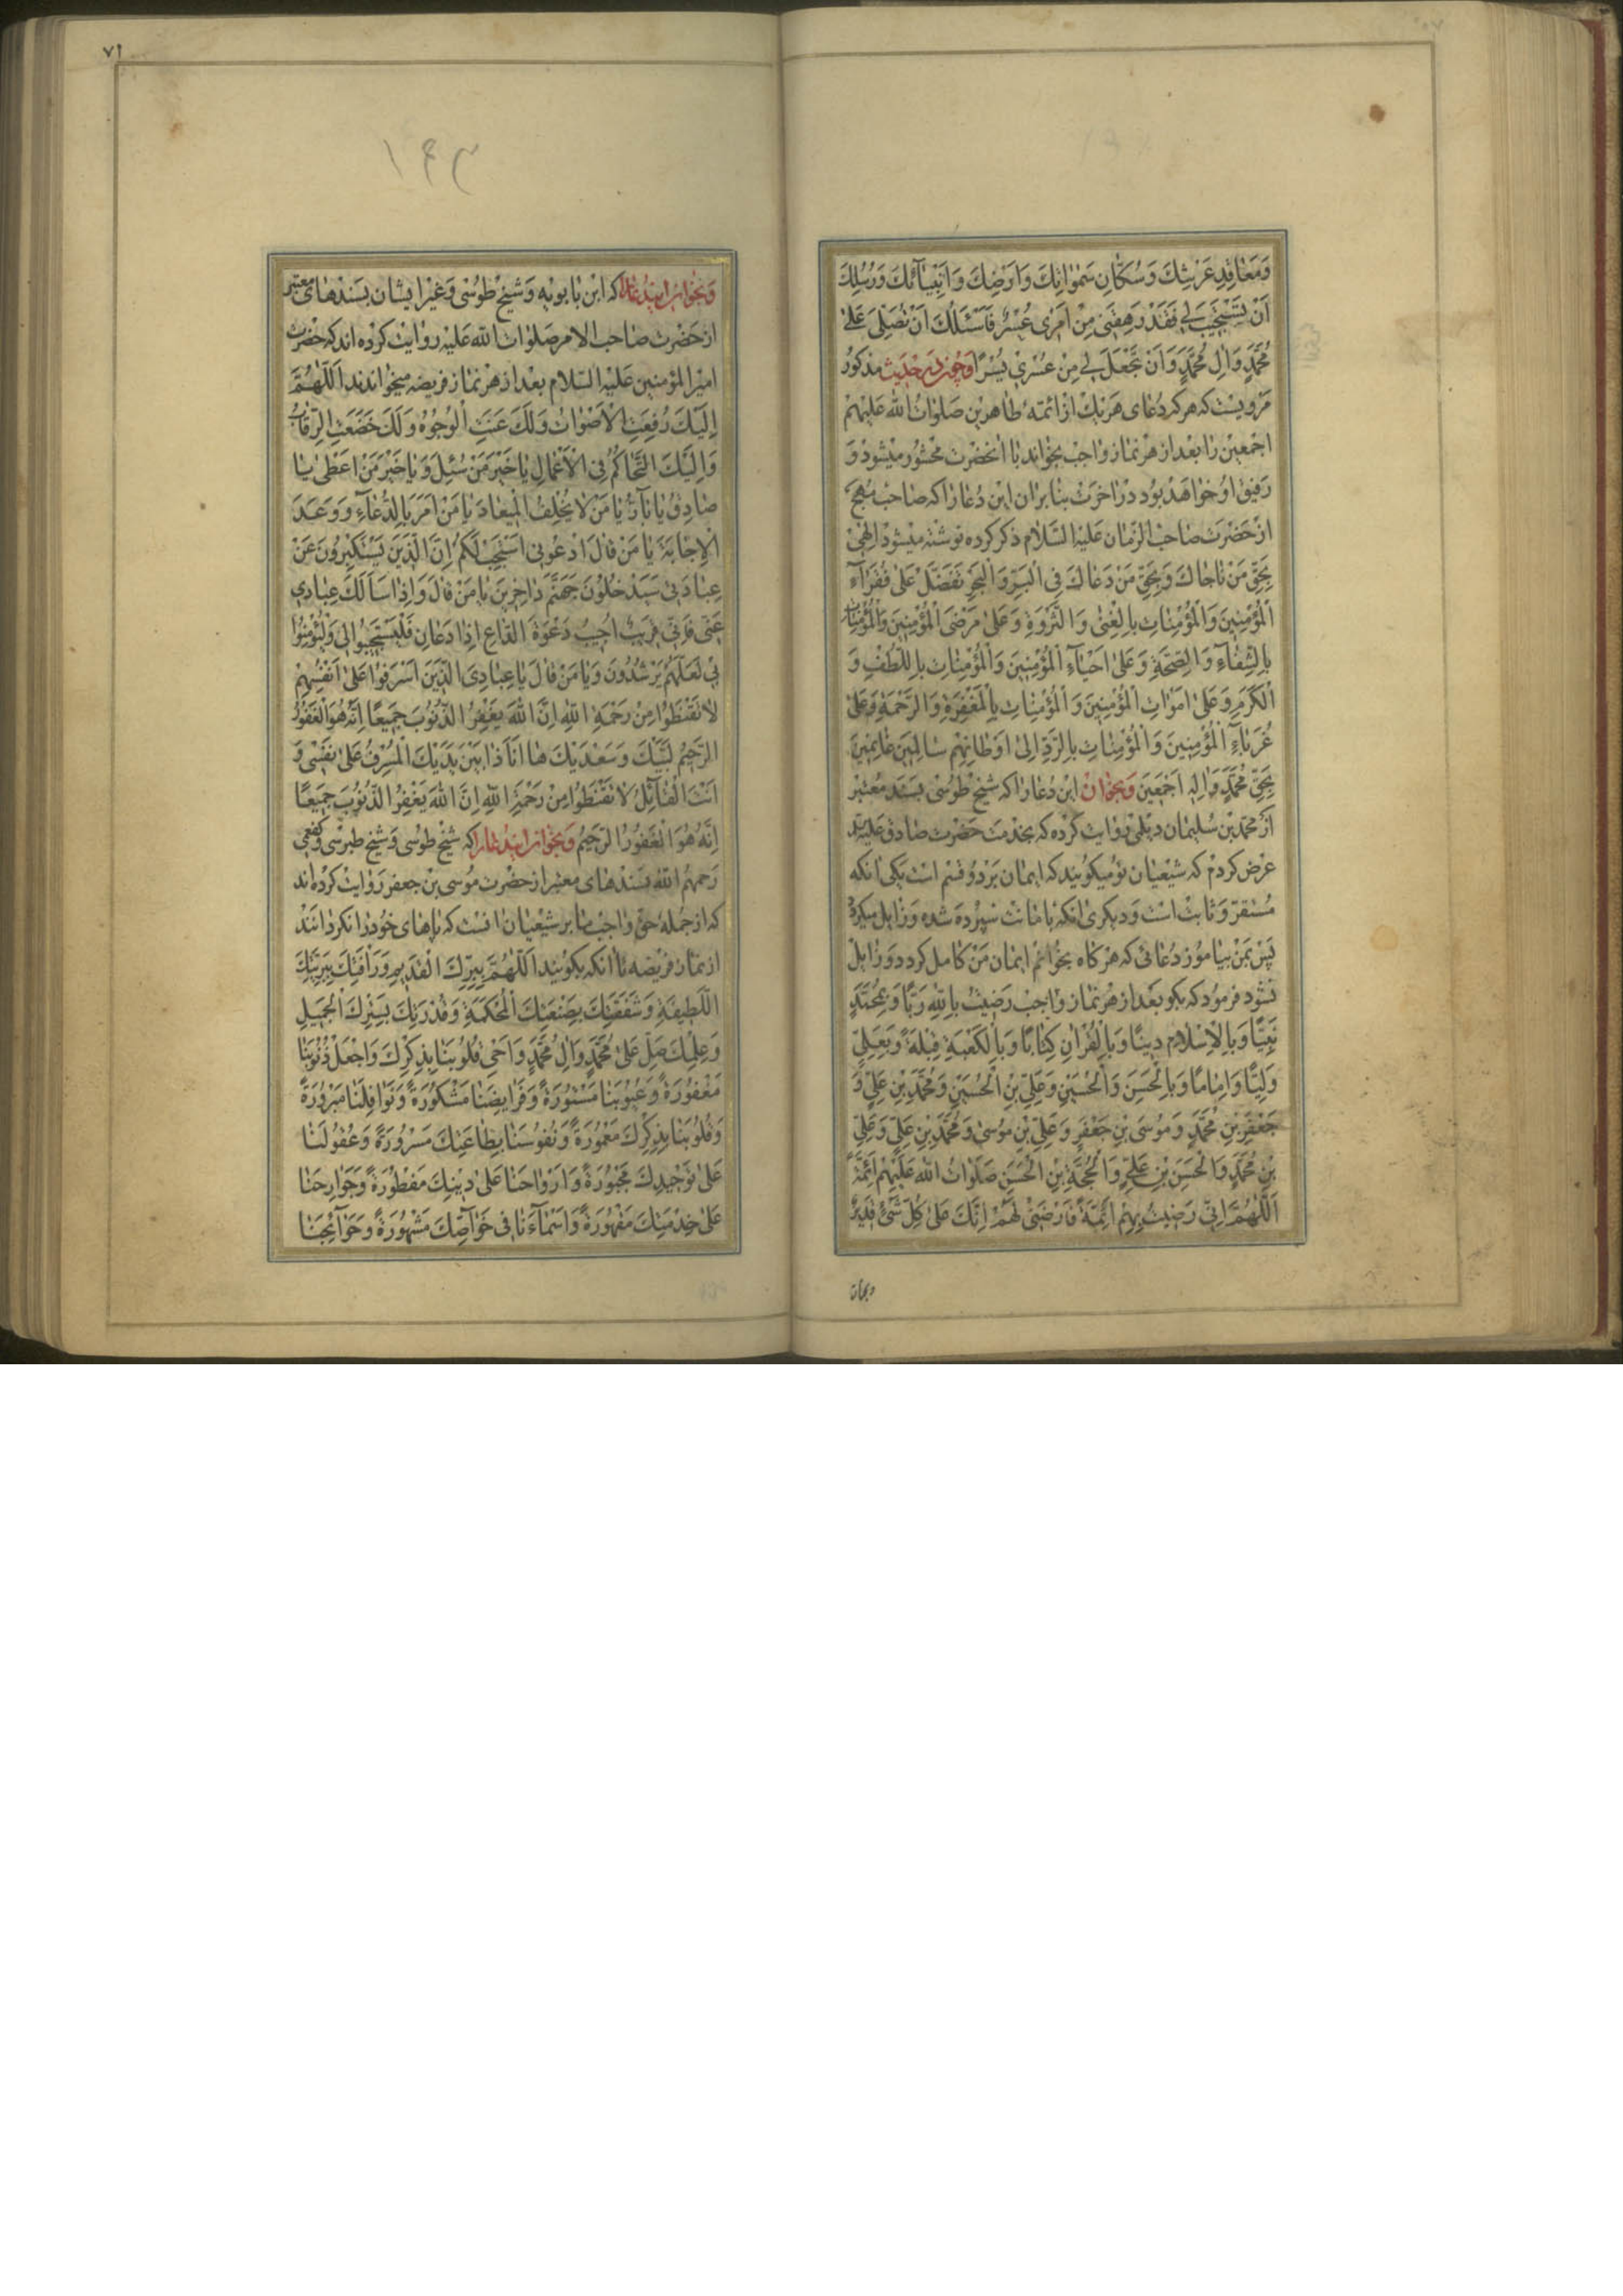 وَمَعٰاقِدِ عَرْشِكَ وَسُكّٰانِ سَمٰوٰاتِكَ وَاَرْضِكَ وَاَنْبِيٰآئِكَ وَرُسُلِكَ
اَنْ تَسْتَجيبَ لي فَقَدْ رَهِقَني مِنْ اَمْري عُسْرٌ فَاَسْئَلُكَ اَنْ تُصَلِّيَ عَلىٰ
مُحَمَّدٍ وَاٰلِ مُحَمَّدٍ وَاَنْ تَجْعَلَ لي مِنْ عُسْري يُسْرًا وَچون در حديث مذكور
مرويست كه هر كه دعاى هريك از ائمهٔ طاهرين صلوات الله عليهم
اجمعين را بعد از هر نماز واجب بخواند با انحضرت محشور ميشود و
رفيق او خواهد بود در اخرت بنابران اين دعا را كه صاحب مهج
از حضرت صاحب الزمان عليه السلام ذكر كرده نوشته ميشود اِلٰهي
بِحَقِّ مَنْ نٰاجٰاكَ وَبِحَقِّ مَنْ دَعٰاكَ فِي الْبَرِّ وَالْبَحْرِ تَفَضَّلْ عَلىٰ فُقَرٰآءِ
الْمُؤْمِنينَ وَالْمُؤْمِنٰاتِ بِالْغِنىٰ وَالثَّرْوَةِ وَعَلىٰ مَرْضَى الْمُؤْمِنينَ وَالْمُؤْمِنٰاتِ
بِالشِّفٰآءِ وَالصِّحَّةِ وَعَلىٰ اَحْيٰآءِ الْمُؤْمِنينَ وَالْمُؤْمِنٰاتِ بِاللُّطْفِ وَ
الْكَرَمِ وَعَلىٰ اَمْوٰاتِ الْمُؤْمِنينَ وَالْمُؤْمِنٰاتِ بِالْمَغْفِرَةِ وَالرَّحْمَةِ وَعَلىٰ
غُرَبٰآءِ الْمُؤْمِنينَ وَالْمُؤْمِنٰاتِ بِالرَّدِّ اِلىٰ اَوْطٰانِهِمْ سٰالِمينَ غٰانِمينَ
بِحَقِّ مُحَمَّدٍ وَاٰلِهِ اَجْمَعينَ وبخوان اين دعا را كه شيخ طوسى بسند معتبر
از محمد بن سليمان ديلمى روايت كرده كه بخدمت حضرت صادق عليه
عرض كردم كه شيعيان تو ميگويند كه ايمان بر دو قسم است يكى انكه
مستقر و ثابت است و ديگرى انكه بامانت سپرده شده و زايل ميگردد
پس بمن بياموز دعائى كه هرگاه بخوانم ايمان من كامل گردد و زايل
نشود فرمود كه بگو بعد از هر نماز واجب رَضيتُ بِاللهِ رَبًّا وَبِمُحَمَّدٍ
نَبِيًّا وَبِالْاِسْلٰامِ دينًا وَبِالْقُرْاٰنِ كِتٰابًا وَبِالْكَعْبَةِ قِبْلَةً وَبِعَلِيٍّ
وَلِيًّا وَاِمٰامًا وَبِالْحَسَنِ وَالْحُسَيْنِ وَعَلِيِّ بْنِ الْحُسَيْنِ وَمُحَمَّدِ بْنِ عَلِيٍّ وَ
جَعْفَرِ بْنِ مُحَمَّدٍ وَمُوسَى بْنِ جَعْفَرٍ وَعَلِيِّ بْنِ مُوسىٰ وَمُحَمَّدِ بْنِ عَلِيٍّ وَعَلِيِّ
بْنِ مُحَمَّدٍ وَالْحَسَنِ بْنِ عَلِيٍّ وَالْحُجَّةِ بْنِ الْحَسَنِ صَلَوٰاتُ اللهِ عَلَيْهِمْ اَئِمَّةً
اَللّٰهُمَّ اِنّي رَضيتُ بِهِمْ اَئِمَّةً فَارْضَني لَهُمْ اِنَّكَ عَلىٰ كُلِّ شَيْئٍ قَديرٌ
٧١
١٤٣
وبخوان ايندعا را كه ابن بابويه وشيخ طوسى وغير ايشان بسندهاى معتبر
از حضرت صاحب الامر صلوات الله عليه روايت كرده اند كه حضرت
امير المؤمنين عليه السلام بعد از هر نماز فريضه ميخواندند اَللّٰهُمَّ
اِلَيْكَ رُفِعَتِ الْاَصْوٰاتُ وَلَكَ عَنَتِ الْوُجُوهُ وَلَكَ خَضَعَتِ الرِّقٰابُ
وَاِلَيْكَ التَّحٰاكُمُ فِي الْاَعْمٰالِ يٰا خَيْرَ مَنْ سُئِلَ وَيٰا خَيْرَ مَنْ اَعْطىٰ يٰا
صٰادِقُ يٰا بٰآرُّ يٰا مَنْ لٰا يُخْلِفُ الْميعٰادَ يٰا مَنْ اَمَرَ بِالدُّعٰآءِ وَوَعَدَ
الْاِجٰابَةَ يٰا مَنْ قٰالَ ادْعُوني اَسْتَجِبْ لَكُمْ اِنَّ الَّذينَ يَسْتَكْبِرُونَ عَنْ
عِبٰادَتي سَيَدْخُلُونَ جَهَنَّمَ دٰاخِرينَ يٰا مَنْ قٰالَ وَاِذٰا سَاَلَكَ عِبٰادي
عَنّي فَاِنّي قَريبٌ اُجيبُ دَعْوَةَ الدّٰاعِ اِذٰا دَعٰانِ فَلْيَسْتَجيبُوا لي وَلْيُؤْمِنُوا
بي لَعَلَّهُمْ يَرْشُدُونَ وَيٰا مَنْ قٰالَ يٰا عِبٰادِيَ الَّذينَ اَسْرَفُوا عَلىٰ اَنْفُسِهِمْ
لٰا تَقْنَطُوا مِنْ رَحْمَةِ اللهِ اِنَّ اللهَ يَغْفِرُ الذُّنُوبَ جَميعًا اِنَّهُ هُوَ الْغَفُورُ
الرَّحيمُ لَبَّيْكَ وَسَعْدَيْكَ هٰا اَنَا ذٰا بَيْنَ يَدَيْكَ الْمُسْرِفُ عَلىٰ نَفْسي وَ
اَنْتَ الْقٰآئِلُ لٰا تَقْنَطُوا مِنْ رَحْمَةِ اللهِ اِنَّ اللهَ يَغْفِرُ الذُّنُوبَ جَميعًا
اِنَّهُ هُوَ الْغَفُورُ الرَّحيمُ وبخوان ايندعا را كه شيخ طوسى وشيخ طبرسى وكفعمى
رحمهم الله بسندهاى معتبر از حضرت موسى بن جعفر روايت كرده اند
كه از جملهٔ حق واجب ما بر شيعيان انست كه پاهاى خود را نگردانند
از نماز فريضه تا انكه بگويند اَللّٰهُمَّ بِبِرِّكَ الْقَديمِ وَرَاْفَتِكَ بِبَرِيَّتِكَ
اللَّطيفَةِ وَشَفَقَتِكَ بِصَنْعَتِكَ الْمُحْكَمَةِ وَقُدْرَتِكَ بِسَتْرِكَ الْجَميلِ
وَعِلْمِكَ صَلِّ عَلىٰ مُحَمَّدٍ وَاٰلِ مُحَمَّدٍ وَاَحْيِ قُلُوبَنٰا بِذِكْرِكَ وَاجْعَلْ ذُنُوبَنٰا
مَغْفُورَةً وَعُيُوبَنٰا مَسْتُورَةً وَفَرٰايِضَنٰا مَشْكُورَةً وَنَوٰافِلَنٰا مَبْرُورَةً
وَقُلُوبَنٰا بِذِكْرِكَ مَعْمُورَةً وَنُفُوسَنٰا بِطٰاعَتِكَ مَسْرُورَةً وَعُقُولَنٰا
عَلىٰ تَوْحيدِكَ مَجْبُورَةً وَاَرْوٰاحَنٰا عَلىٰ دينِكَ مَفْطُورَةً وَجَوٰارِحَنٰا
عَلىٰ خِدْمَتِكَ مَقْهُورَةً وَاَسْمٰآءَنٰا في خَوٰآصِّكَ مَشْهُورَةً وَحَوٰآئِجَنٰا